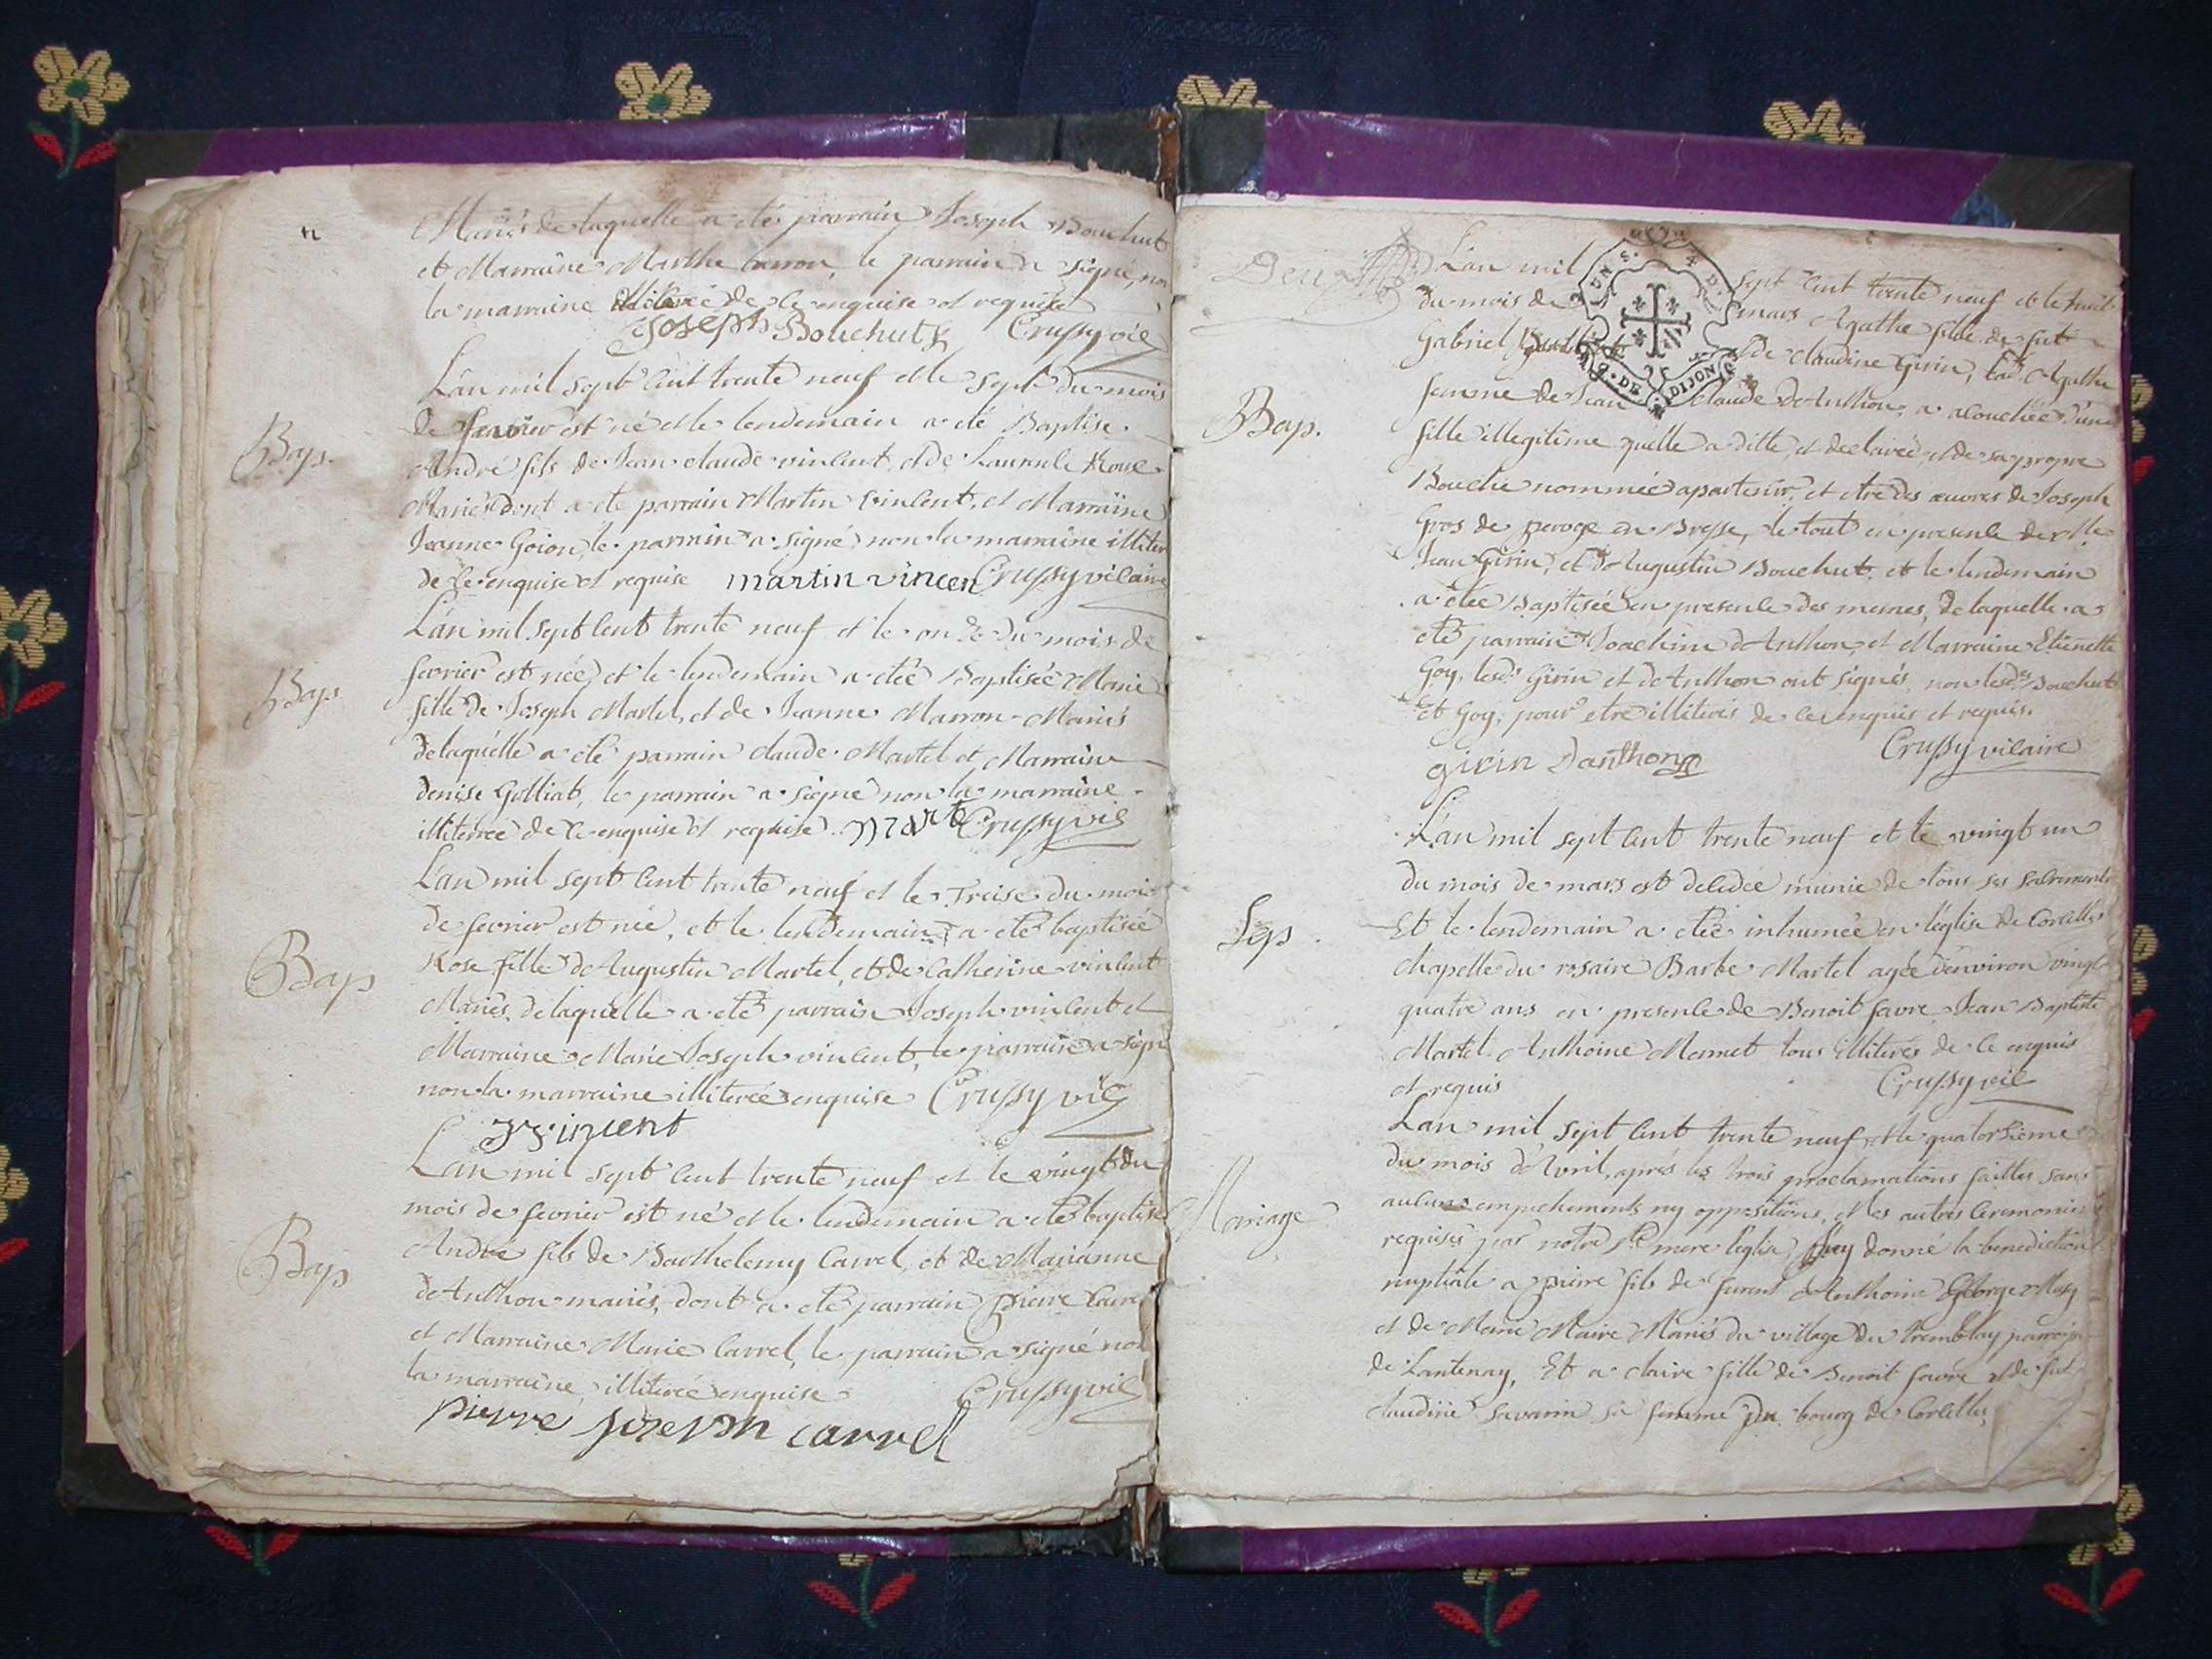 Mariés delaquelle a eté parrain Joseph Bouchut
et Marraine Marthe le parrain a signé, non
la marraine illiterée de ce enquise et requise
Joseph Bouchut Crussy vic
L'an mil sept cent trente neuf et le sept du mois
Bap.
de fevrier est né et le lendemain a eté Baptisé
André fils de Jean claude vincent, et de
Mariés dont a eté parrain Martin vincent, et Marraine
Jeanne Goion, le parrain a signé non la marraine illiter
de ce enquise et requise martin vincen Crussy vicaire
L'an mil sept cent trente neuf et le onze du mois de
Bap.
fevrier est née et le lendemain a etée Baptisée Marie
fille de Joseph Martel, et de Jeanne Marron Mariés
delaquelle a eté parrain claude Martel et Marraine
denise Golliat, le parrain a signé non la marraine
illiterée de ce enquise et requise Crussy vic
L'an mil sept cent trente neuf et le Treise du mois
de fevrier est née, et le lendemain a eté baptisée
Bap
Rose fille d'Augustin Martel, et de Catherine vincent
Mariés, delaquelle a eté parrain Joseph vincent et
Marraine Marie Joseph vincent, le parrain a signé
non la marraine illiterée enquise Crussy vic
vincent
L'an mil sept cent trente neuf et le vingt du
mois de fevrier est né et le lendemain a eté baptisé
Bap
André fils de Barthelemy Carrel, et de Marianne
d'Anthon mariés, dont a eté parrain pierre Carrel
et Marraine Marie Carrel, le parrain a signé non
la marraine illiterée enquise Crussy vic
pierre joseph carrel
Deux
L'an mil sept cent trente neuf et le huit
du mois de mars Agathe fille de fut
Gabriel de claudine Girin, lad. Agathe
DE DIJON
Bap.
femme de Jean claude d'Anthon, a acouchée d'une
fille illegitime quelle a ditte, et declarée, et de sa propre
Bouche nommée apartenir, et etre des œuvres de Joseph
Gros de peroge en Bresse, le tout en presence de
Jean Girin, et d'Augustin Bouchut, et le lendemain
a etée Baptisée en presence des memes, delaquelle a
eté parrain Joachim d'Anthon, et Marraine Etiennette
Goy, lesd. Girin et d'Anthon ont signés, non lesd. Bouchut
et Goy, pour etre illiterés de ce enquis et requis.
girin Danthon Crussy vicaire
L'an mil sept cent trente neuf et le vingt un
du mois de mars est decedée munie de tous ses sacrements
Sep.
Et le lendemain a etée inhumée en l'eglise de Corcelles
chapelle du rosaire Barbe Martel agée d'environ vingt
quatre ans en presence de Benoit favre, Jean Baptiste
Martel, Anthoine Mermet tous illiterés de ce enquis
et requis Crussy vic
L'an mil sept cent trente neuf et le quatorsieme
du mois d'Avril, aprés les trois proclamations faittes sans
Mariage
aucuns empechements ny oppositions, et les autres ceremonies
requises par notre ste mere l'eglise, j'ay donné la benediction
nuptiale a pierre fils de furent Anthoine George
et de Marie Maire Mariés du village du tremblay parroisse
de Lantenay, Et a claire fille de Benoit favre et de fut
claudine Savarin sa femme du bourg de Corcelles,